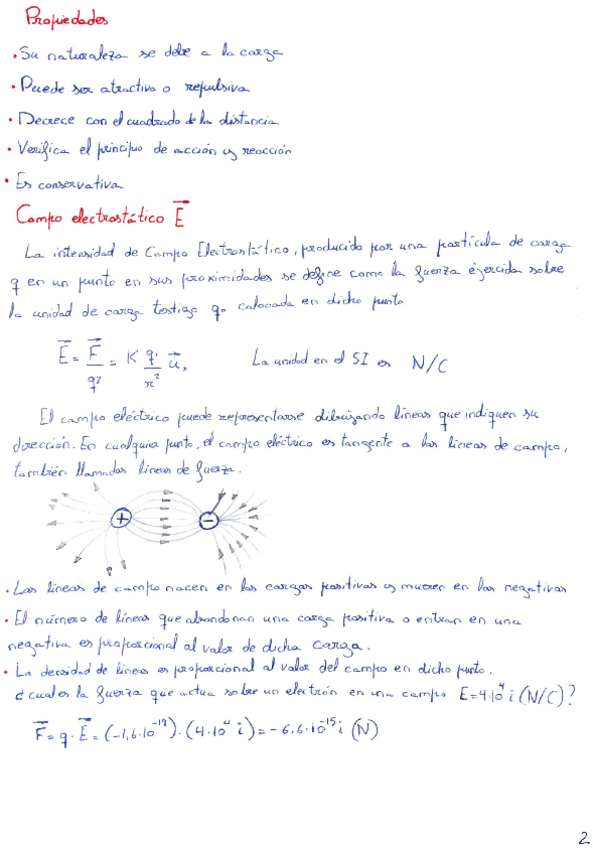 Propiedades
• Su naturaleza se debe a la carga
• Puede ser atractiva o repulsiva
• Decrece con el cuadrado de la distancia
• Verifica el principio de acción y reacción
• Es conservativa
Campo electrostático E⃗
La intensidad de Campo Electrostático, producido por una partícula de carga
q en un punto en sus proximidades se define como la fuerza ejercida sobre
la unidad de carga testigo q₀ colocada en dicho punto
E⃗ = F⃗/q² = K q₁/r² u⃗r La unidad en el SI es N/C
El campo eléctrico puede representarse dibujando líneas que indiquen su
dirección. En cualquier punto, el campo eléctrico es tangente a las líneas de campo,
también llamadas líneas de fuerza.
+ −
• Las líneas de campo nacen en las cargas positivas y mueren en las negativas
• El número de líneas que abandonan una carga positiva o entran en una
negativa es proporcional al valor de dicha carga.
• La densidad de líneas es proporcional al valor del campo en dicho punto.
¿cual es la fuerza que actua sobre un electrón en una campo E=4·10⁴ i (N/C)?
F⃗ = q·E⃗ = (-1,6·10⁻¹⁹)·(4·10⁴ i) = -6.6·10⁻¹⁵ i (N)
2